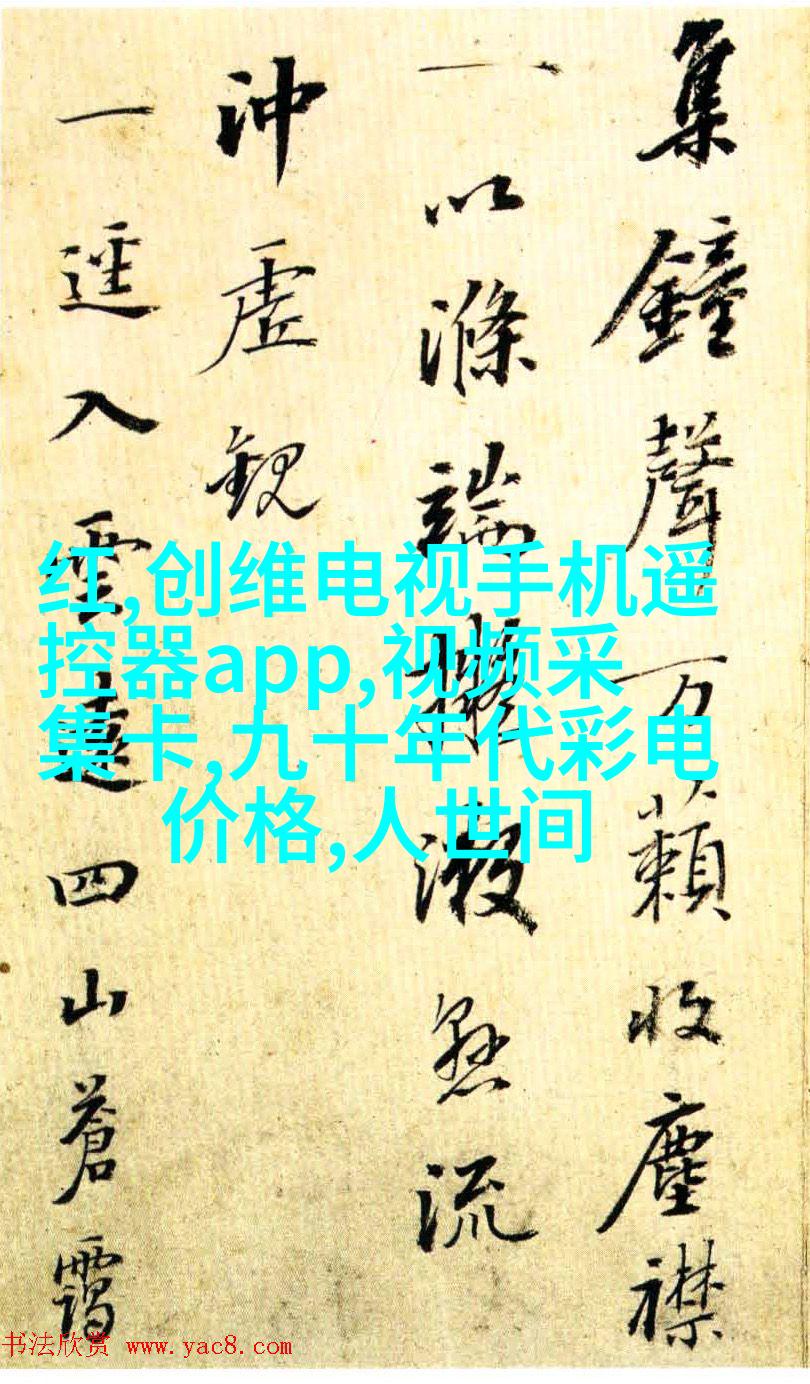 集鐘聲万籟收塵襟
一以滌端擬懸流
沖虛觀
一逕入雲遠四山蒼靄
红,创维电视手机遥
控器app,视频采
集卡,九十年代彩电
价格,人世间
书法欣赏 www.yac8.com